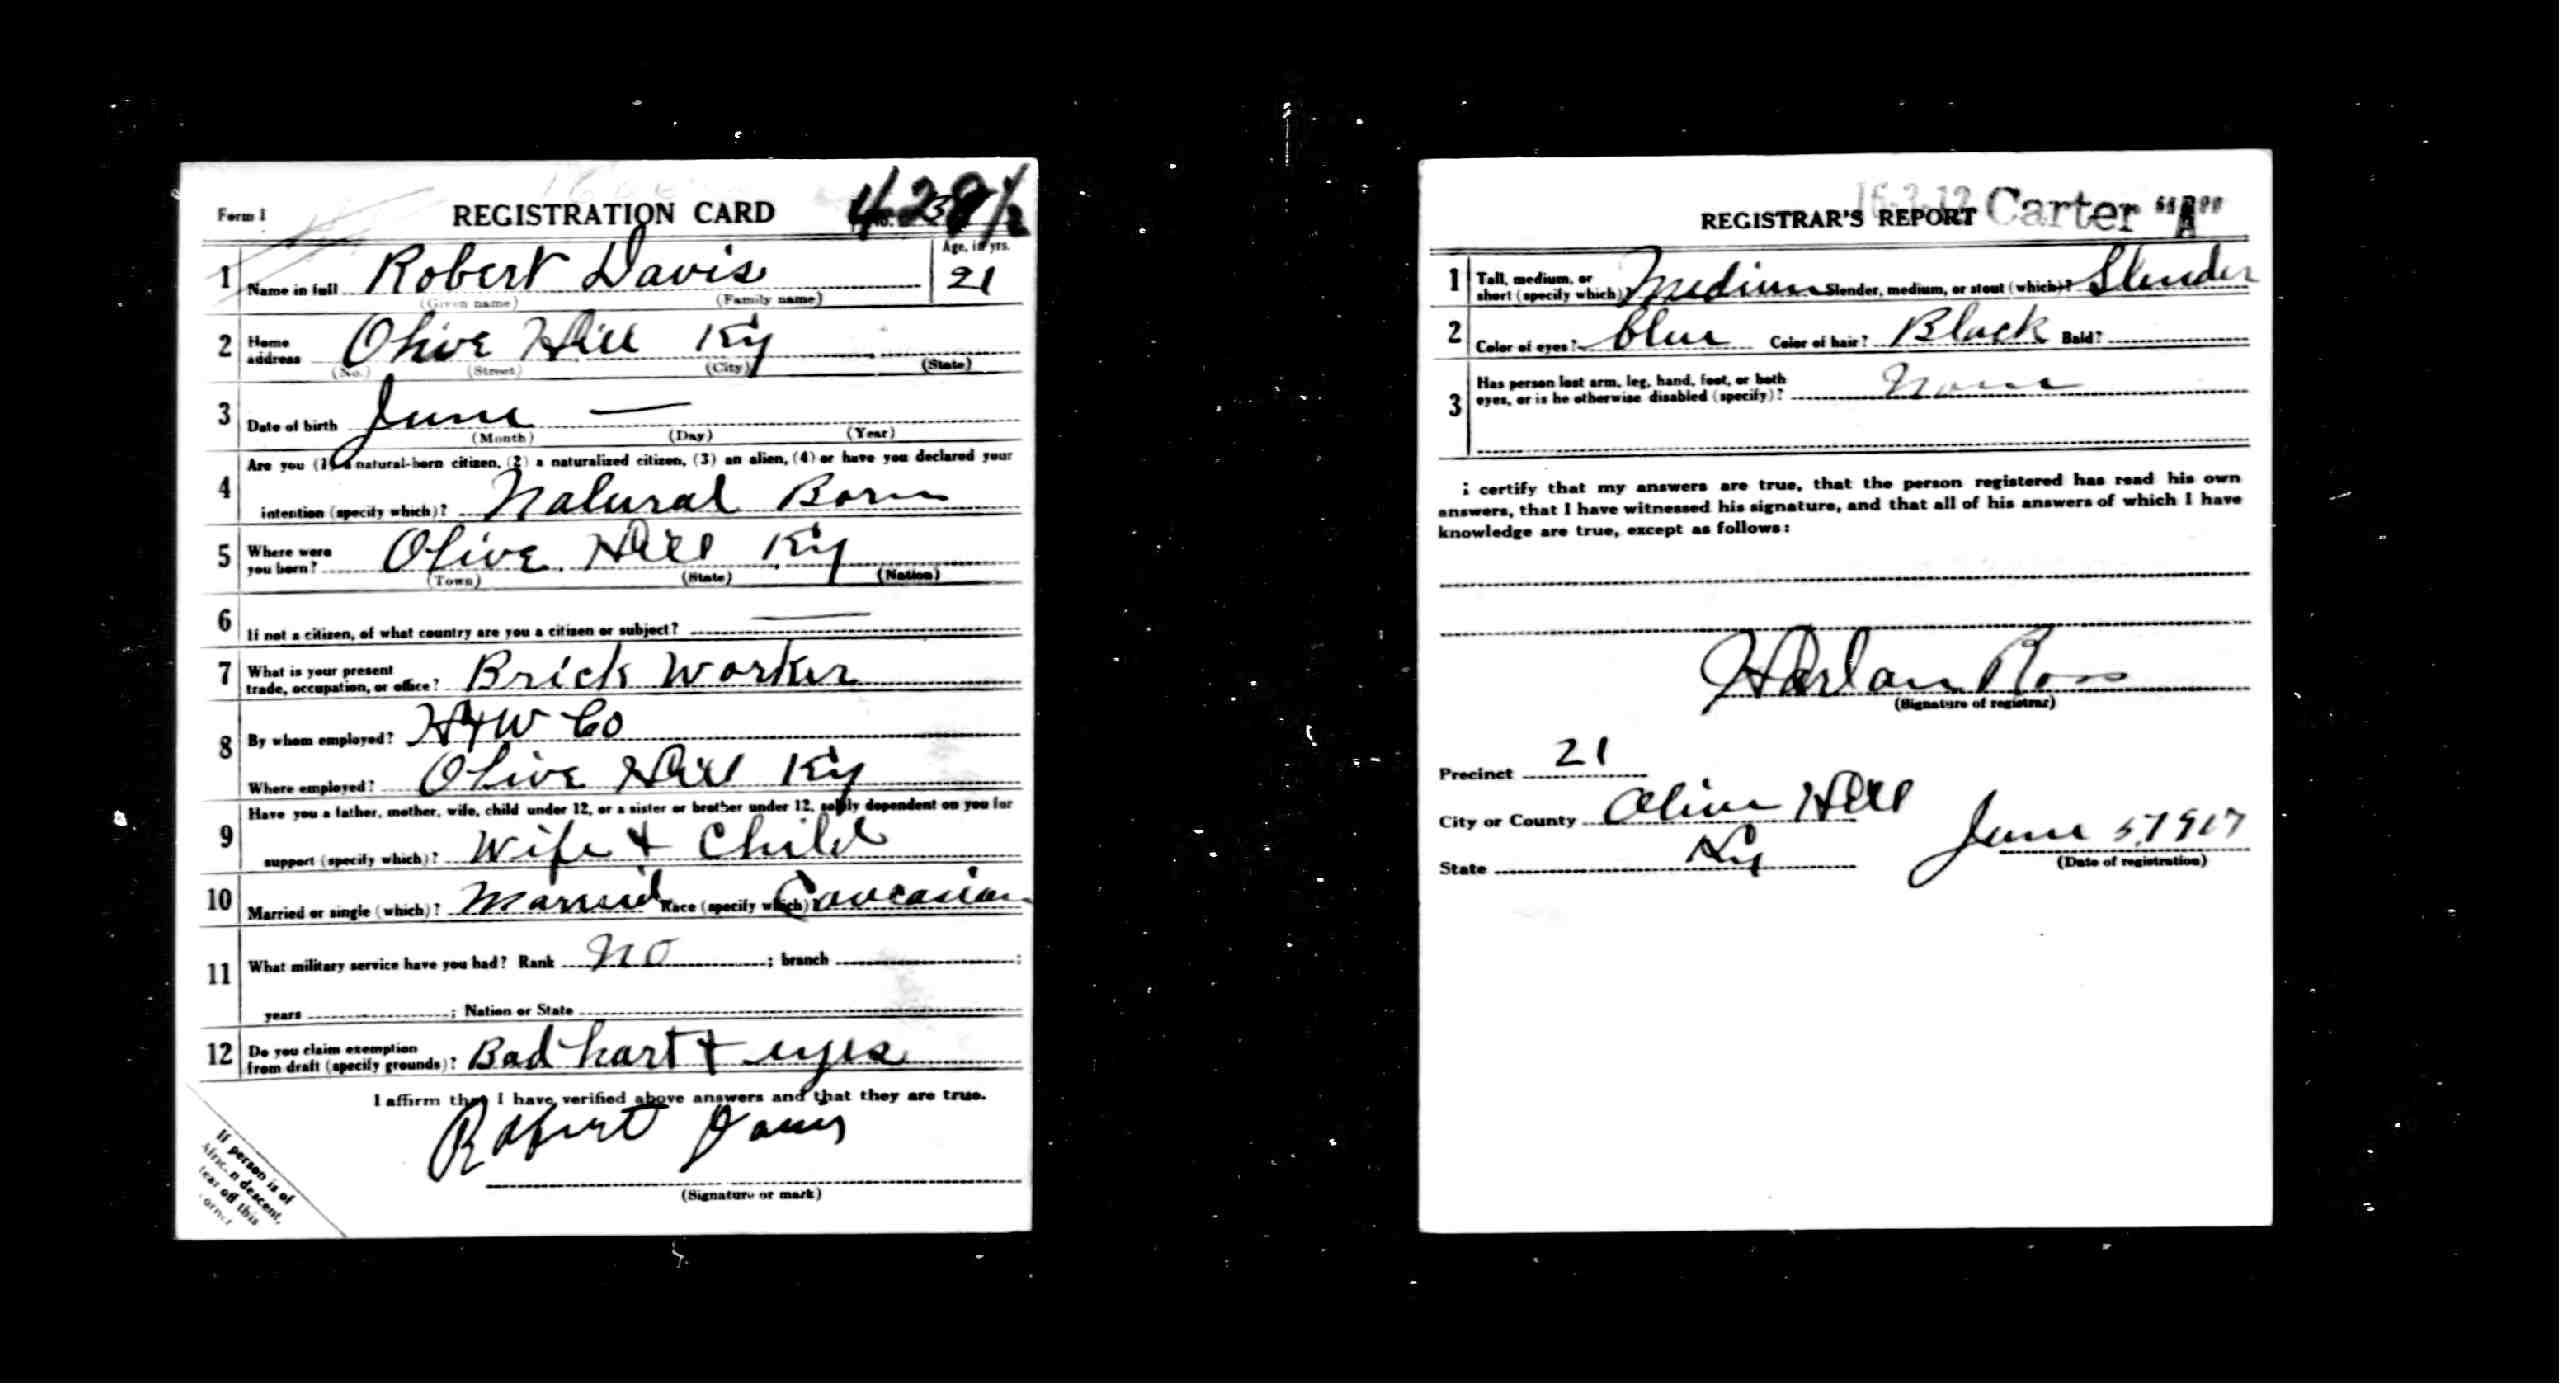 Form 1 REGISTRATION CARD
Age, in yrs.
1 Name in full Robert Davis 21
(Given name) (Family name)
2 Home address Olive Hill Ky
(No.) (Street) (City) (State)
3 Date of birth June —
(Month) (Day) (Year)
Are you (1) a natural-born citizen, (2) a naturalized citizen, (3) an alien, (4) or have you declared your
4 intention (specify which)? Natural Born
5 Where were you born? Olive Hill Ky
(Town) (State) (Nation)
6 If not a citizen, of what country are you a citizen or subject? —
7 What is your present trade, occupation, or office? Brick Worker
8 By whom employed? H & W Co
Where employed? Olive Hill Ky
Have you a father, mother, wife, child under 12, or a sister or brother under 12, solely dependent on you for
9 support (specify which)? Wife & Child
10 Married or single (which)? Married Race (specify which)? Caucasian
11 What military service have you had? Rank No ; branch ;
years ; Nation or State
12 Do you claim exemption from draft (specify grounds)? Bad hart & eyes
I affirm that I have verified above answers and that they are true.
Robert Davis
(Signature or mark)
If person is of
African descent,
tear off this
corner
REGISTRAR'S REPORT Carter "A"
1 Tall, medium, or short (specify which)? Medium Slender, medium, or stout (which)? Slender
2 Color of eyes? blue Color of hair? Black Bald?
Has person lost arm, leg, hand, foot, or both
3 eyes, or is he otherwise disabled (specify)? None
I certify that my answers are true, that the person registered has read his own
answers, that I have witnessed his signature, and that all of his answers of which I have
knowledge are true, except as follows:
Harlan Ross
(Signature of registrar)
Precinct 21
City or County Olive Hill
State Ky June 5, 1917
(Date of registration)